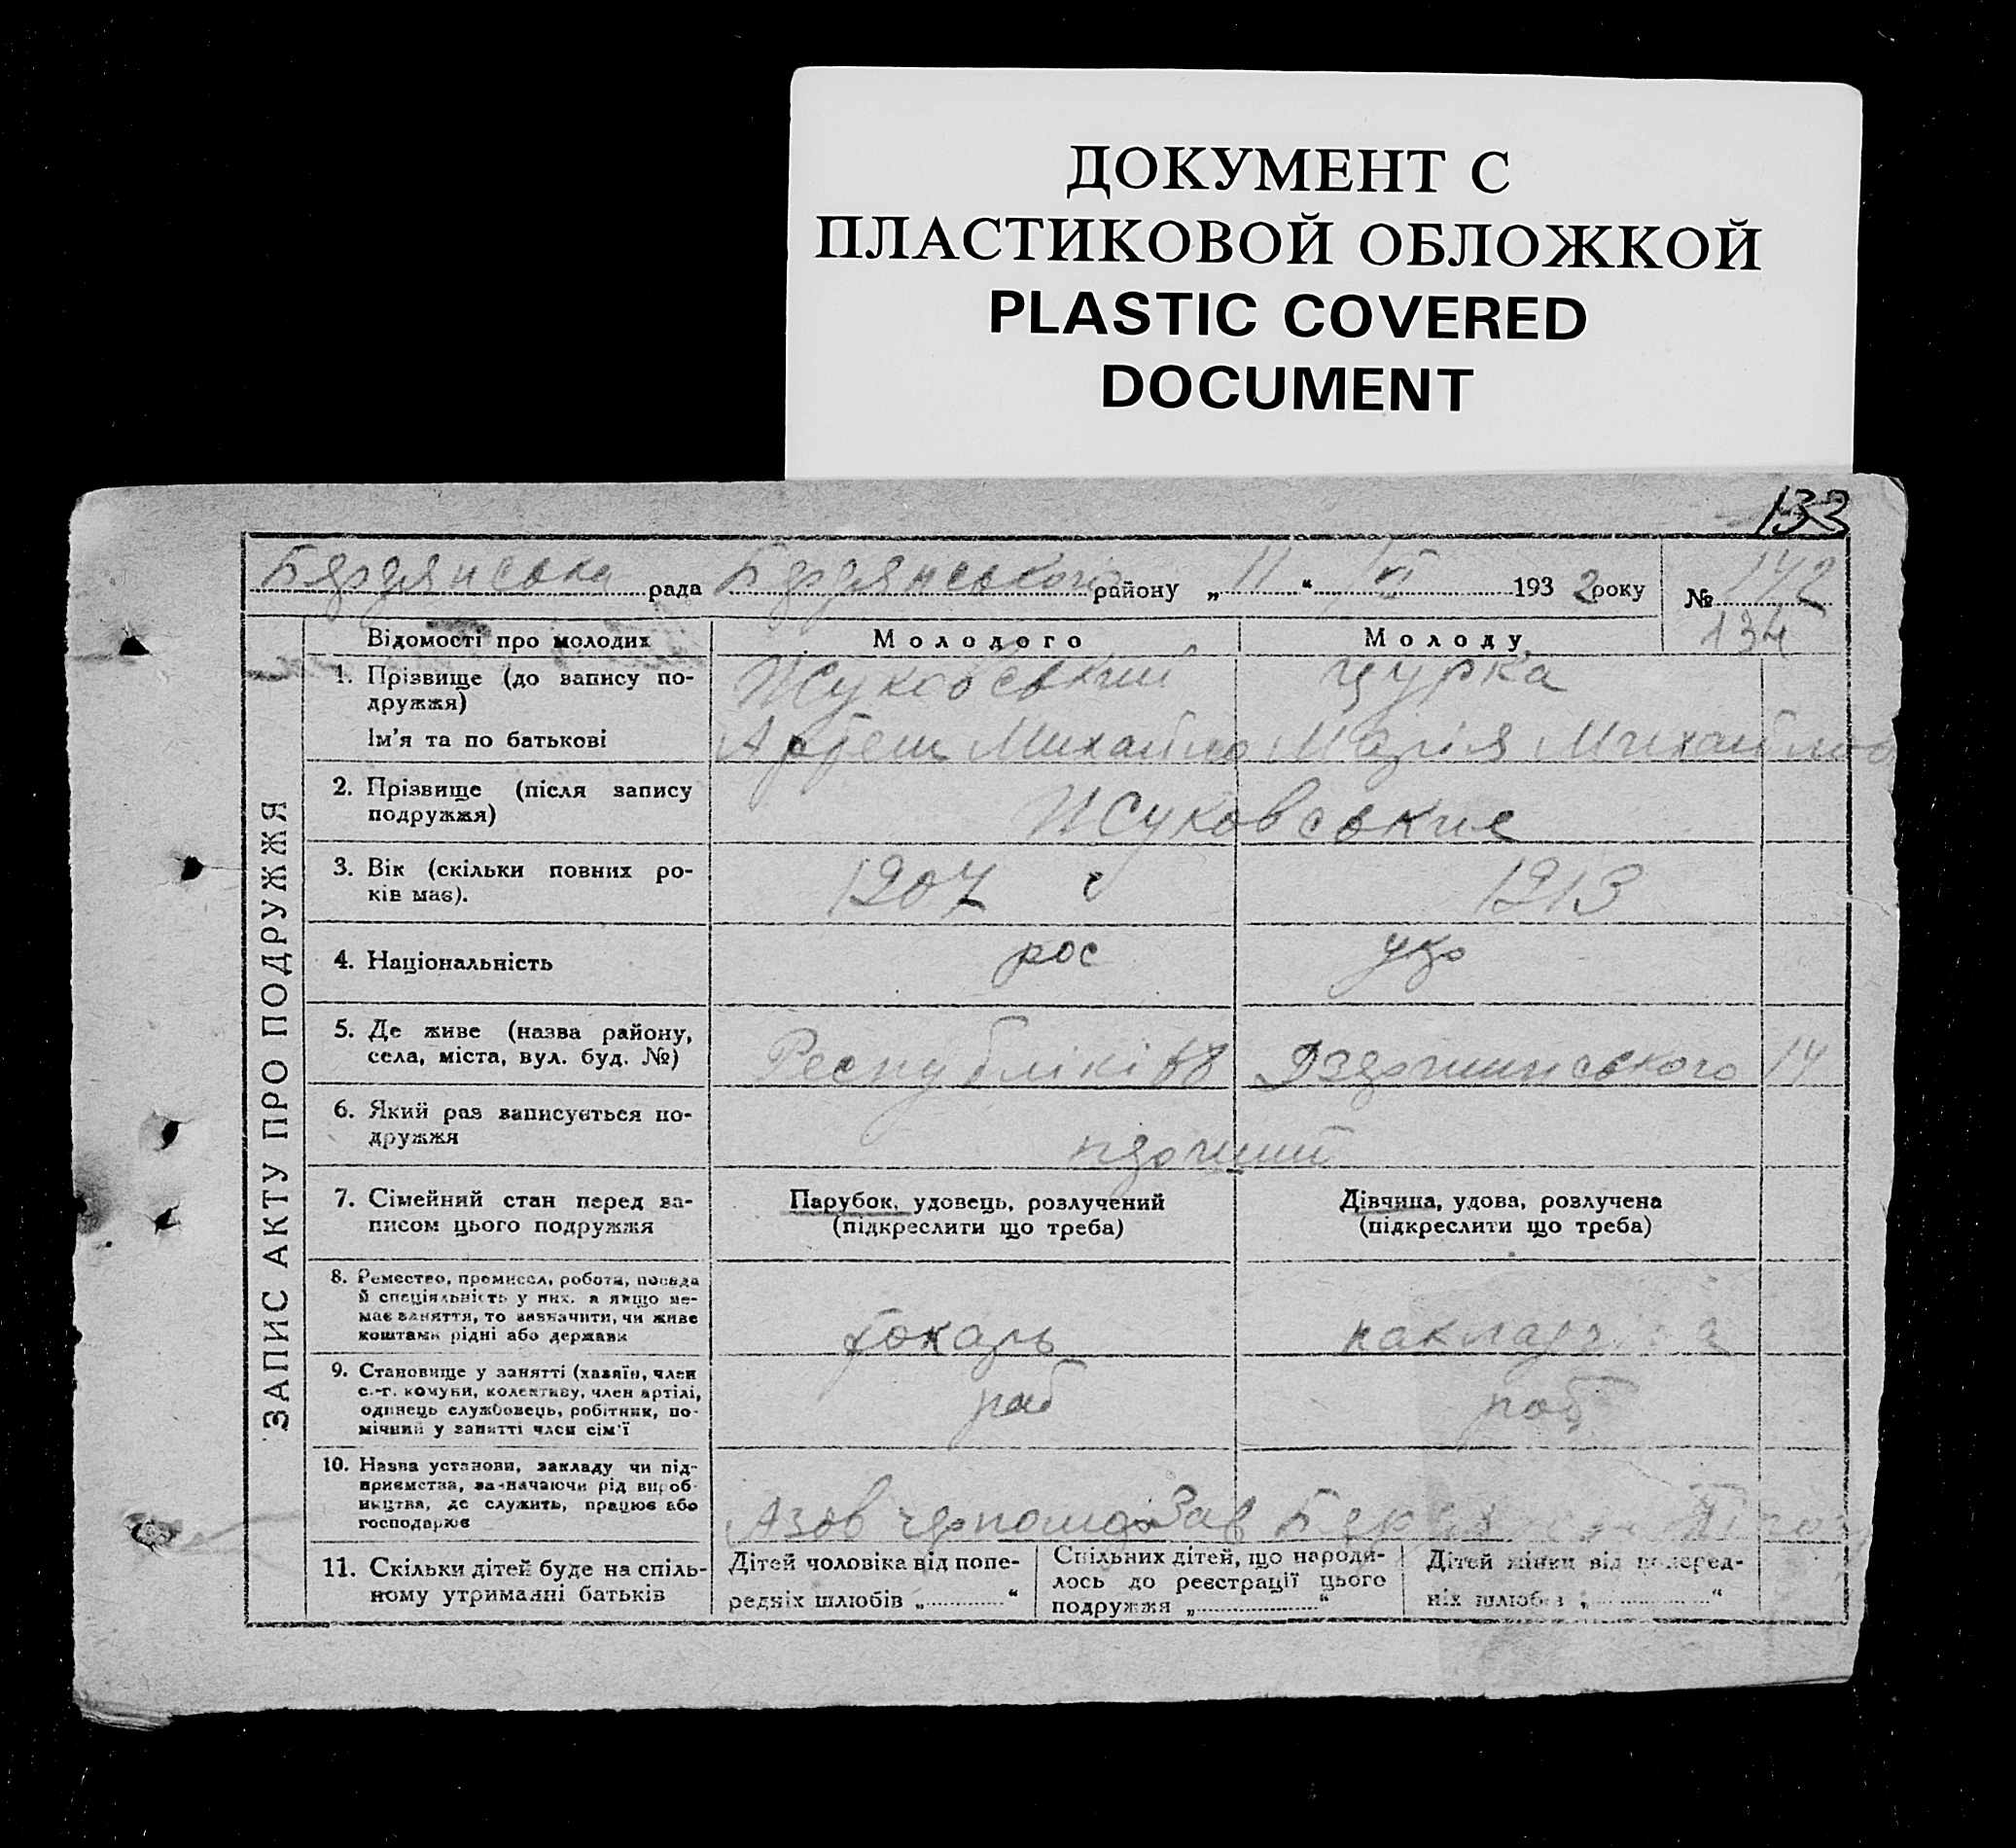 ДОКУМЕНТ С
ПЛАСТИКОВОЙ ОБЛОЖКОЙ
PLASTIC COVERED
DOCUMENT
133
Бердянська рада Бердянського району „ 11 “ VI 1932 року № 142
134
ЗАПИС АКТУ ПРО ПОДРУЖЖЯ
Відомості про молодих Молодого Молоду
1. Прізвище (до запису по-
дружжя) Жуковський Цурка
Ім'я та по батькові Артем Михайло Марія Михайлов
2. Прізвище (після запису
подружжя) Жуковские
3. Вік (скільки повних ро-
ків має). 1907 1913
4. Національність рос укр
5. Де живе (назва району,
села, міста, вул. буд. №) Республікі 68 Дзержинського 14
6. Який раз записується по-
дружжя перший
7. Сімейний стан перед за-
писом цього подружжя
Парубок, удовець, розлучений
(підкреслити що треба)
Дівчина, удова, розлучена
(підкреслити що треба)
8. Ремество, промисел, робота, посада
й спеціяльність у них, а якщо не-
має заняття, то зазначити, чи живе
коштами рідні або держави
токарь
9. Становище у занятті (хазяїн, член
с.-г. комуни, колективу, член артілі,
одинець службовець, робітник, по-
мічний у занятті член сім'ї
раб роб
10. Назва установи, закладу чи під-
приємства, зазначаючи рід вироб-
ництва, де служить, працює або
господарює
Азов Зав
11. Скільки дітей буде на спіль-
ному утриманні батьків
Дітей чоловіка від попе-
редніх шлюбів „ “
Спільних дітей, що народи-
лось до реєстрації цього
подружжя „ “
Дітей жінки від поперед-
ніх шлюбів „ “